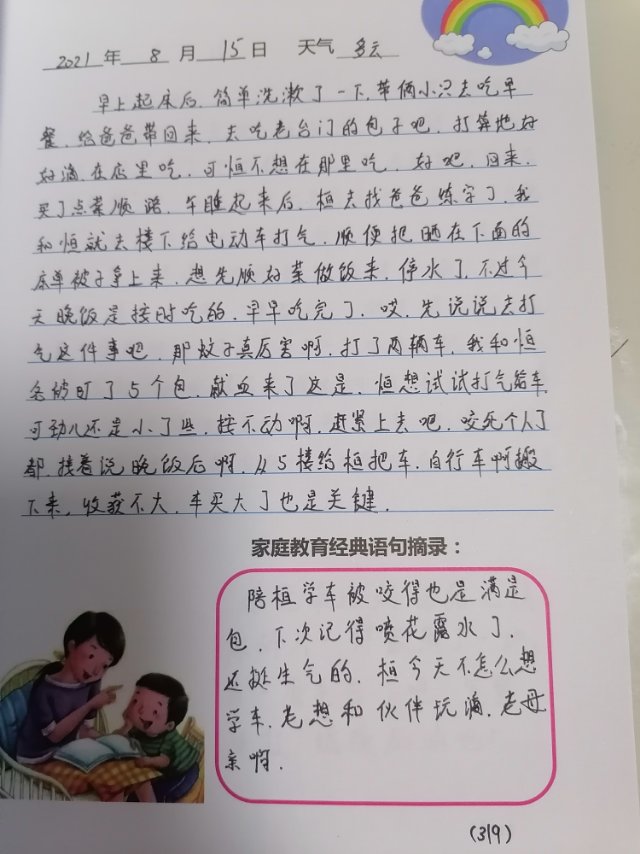 2021 年 8 月 15 日 天气 多云
早上起床后.简单洗漱了一下.带俩小只去吃早
餐.给爸爸带回来.去吃老台门的包子吧.打算好好
好滴在店里吃.可恒不想在那里吃.好吧.回来.
买了点菜顺路.午睡起来后.桓去找爸爸练字了.我
和恒就去楼下给电动车打气.顺便把晒在下面的
床单被子拿上来.想先顺好菜做饭来.停水了.不过今
天晚饭是按时吃的.早早吃完了.哎.先说说去打
气这件事吧.那蚊子真厉害啊.打了两辆车.我和恒
各被叮了5个包.献血来了这是.恒想试试打气给车.
可劲儿还是小了些.按不动啊.赶紧上去吧.咬死个人了
都.接着说晚饭后啊.从5楼给桓把车.自行车啊搬
下来.收获不大.车买大了也是关键.
家庭教育经典语句摘录：
陪桓学车被咬得也是满是
包.下次记得喷花露水了.
还挺生气的.桓今天不怎么想
学车.老想和伙伴玩滴.老母
亲啊.
(319)